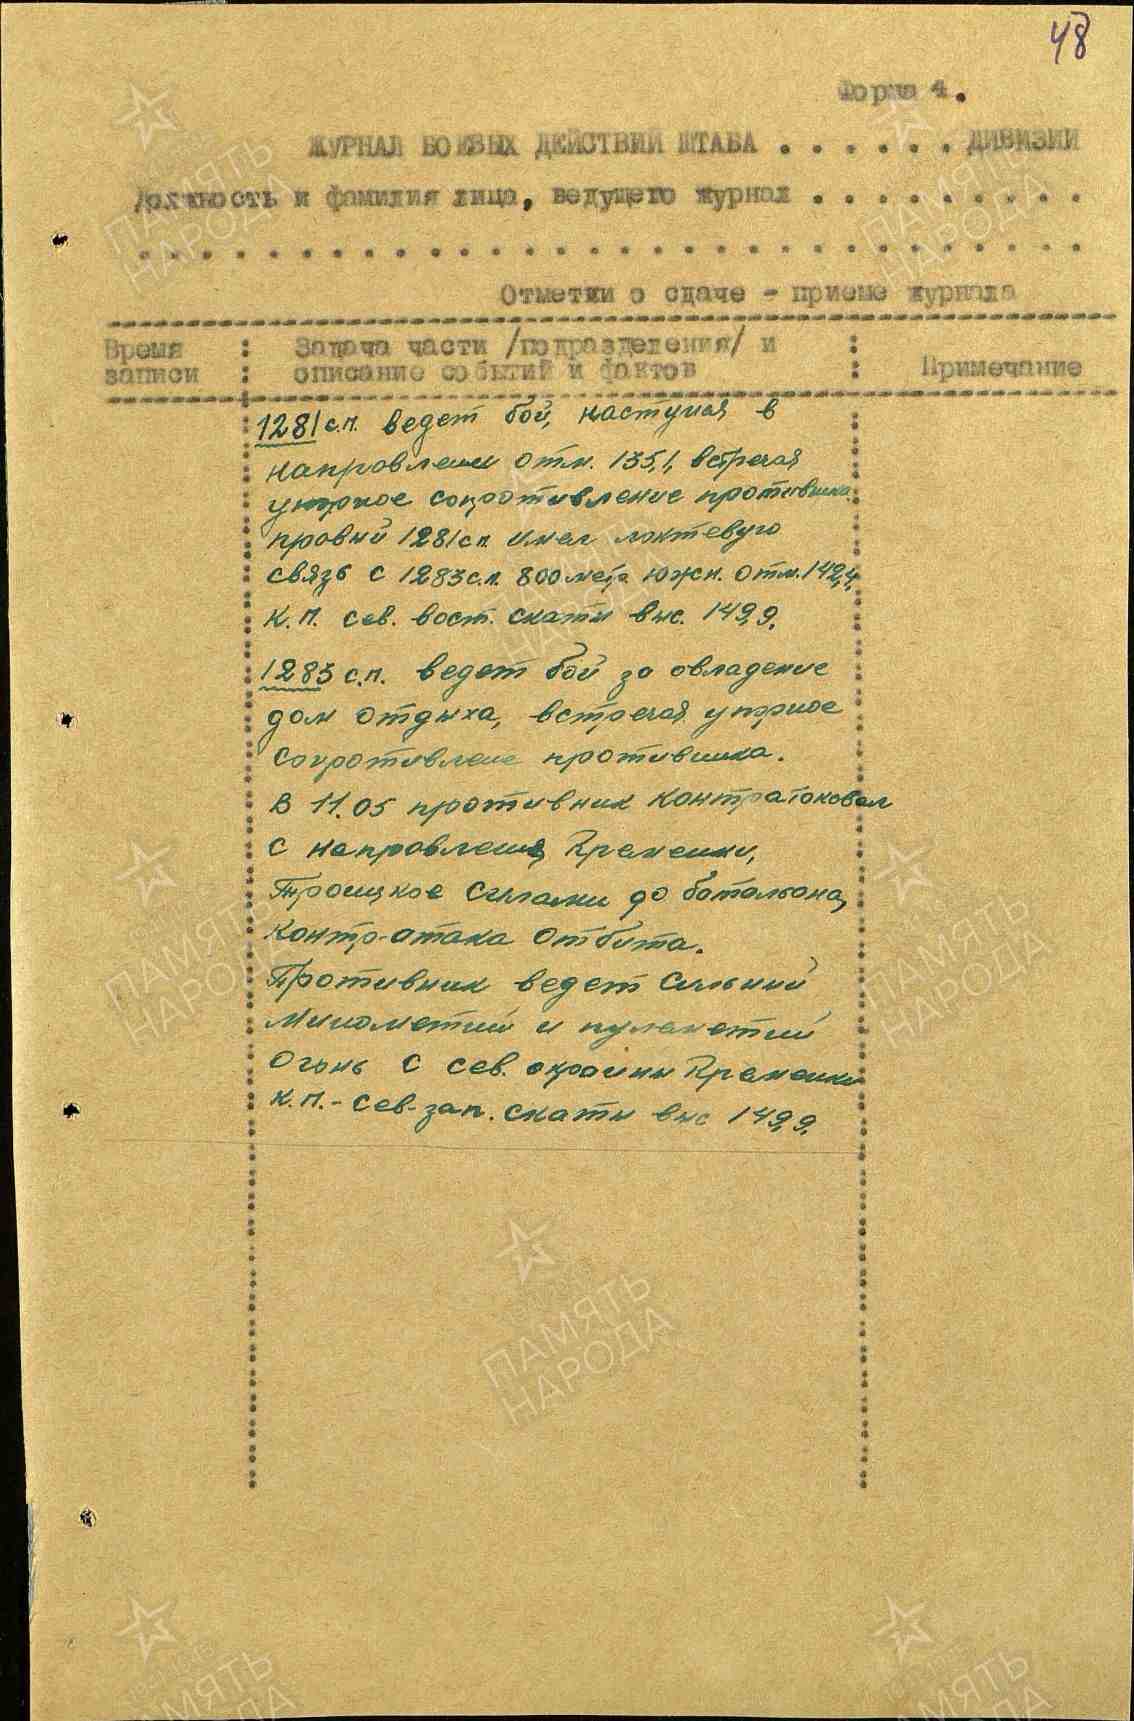 48
Форма 4.
ЖУРНАЛ БОЕВЫХ ДЕЙСТВИЙ ШТАБА . . . . . . ДИВИЗИИ
Должность и фамилия лица, ведущего журнал . . . . . . . . .
. . . . . . . . . . . . . . . . . . . . . . . . . . . . . .
Отметки о сдаче - приеме журнала
Время записи : Задача части /подразделения/ и описание событий и фактов : Примечание
1281 с.п. ведет бой, наступая в
направлении отм. 135,1, встречая
упорное сопротивление противника.
правый 1281 сп. имел локтевую
связь с 1283 с.п. 800 метр. южн. отм. 142,4,
К.П. сев. вост. скаты выс. 149,9.
1283 с.п. ведет бой за овладение
дом отдыха, встречая упорное
сопротивление противника.
В 11.05 противник контратаковал
с направления Кременки,
Троицкое силами до батальона,
контр-атака отбита.
Противник ведет сильный
минометный и пулеметный
огонь с сев. окраины Кременки
К.П. - сев-зап. скаты выс 149,9.
ПАМЯТЬ НАРОДА
ПАМЯТЬ НАРОДА
ПАМЯТЬ НАРОДА
ПАМЯТЬ НАРОДА
ПАМЯТЬ НАРОДА
ПАМЯТЬ НАРОДА
ПАМЯТЬ НАРОДА